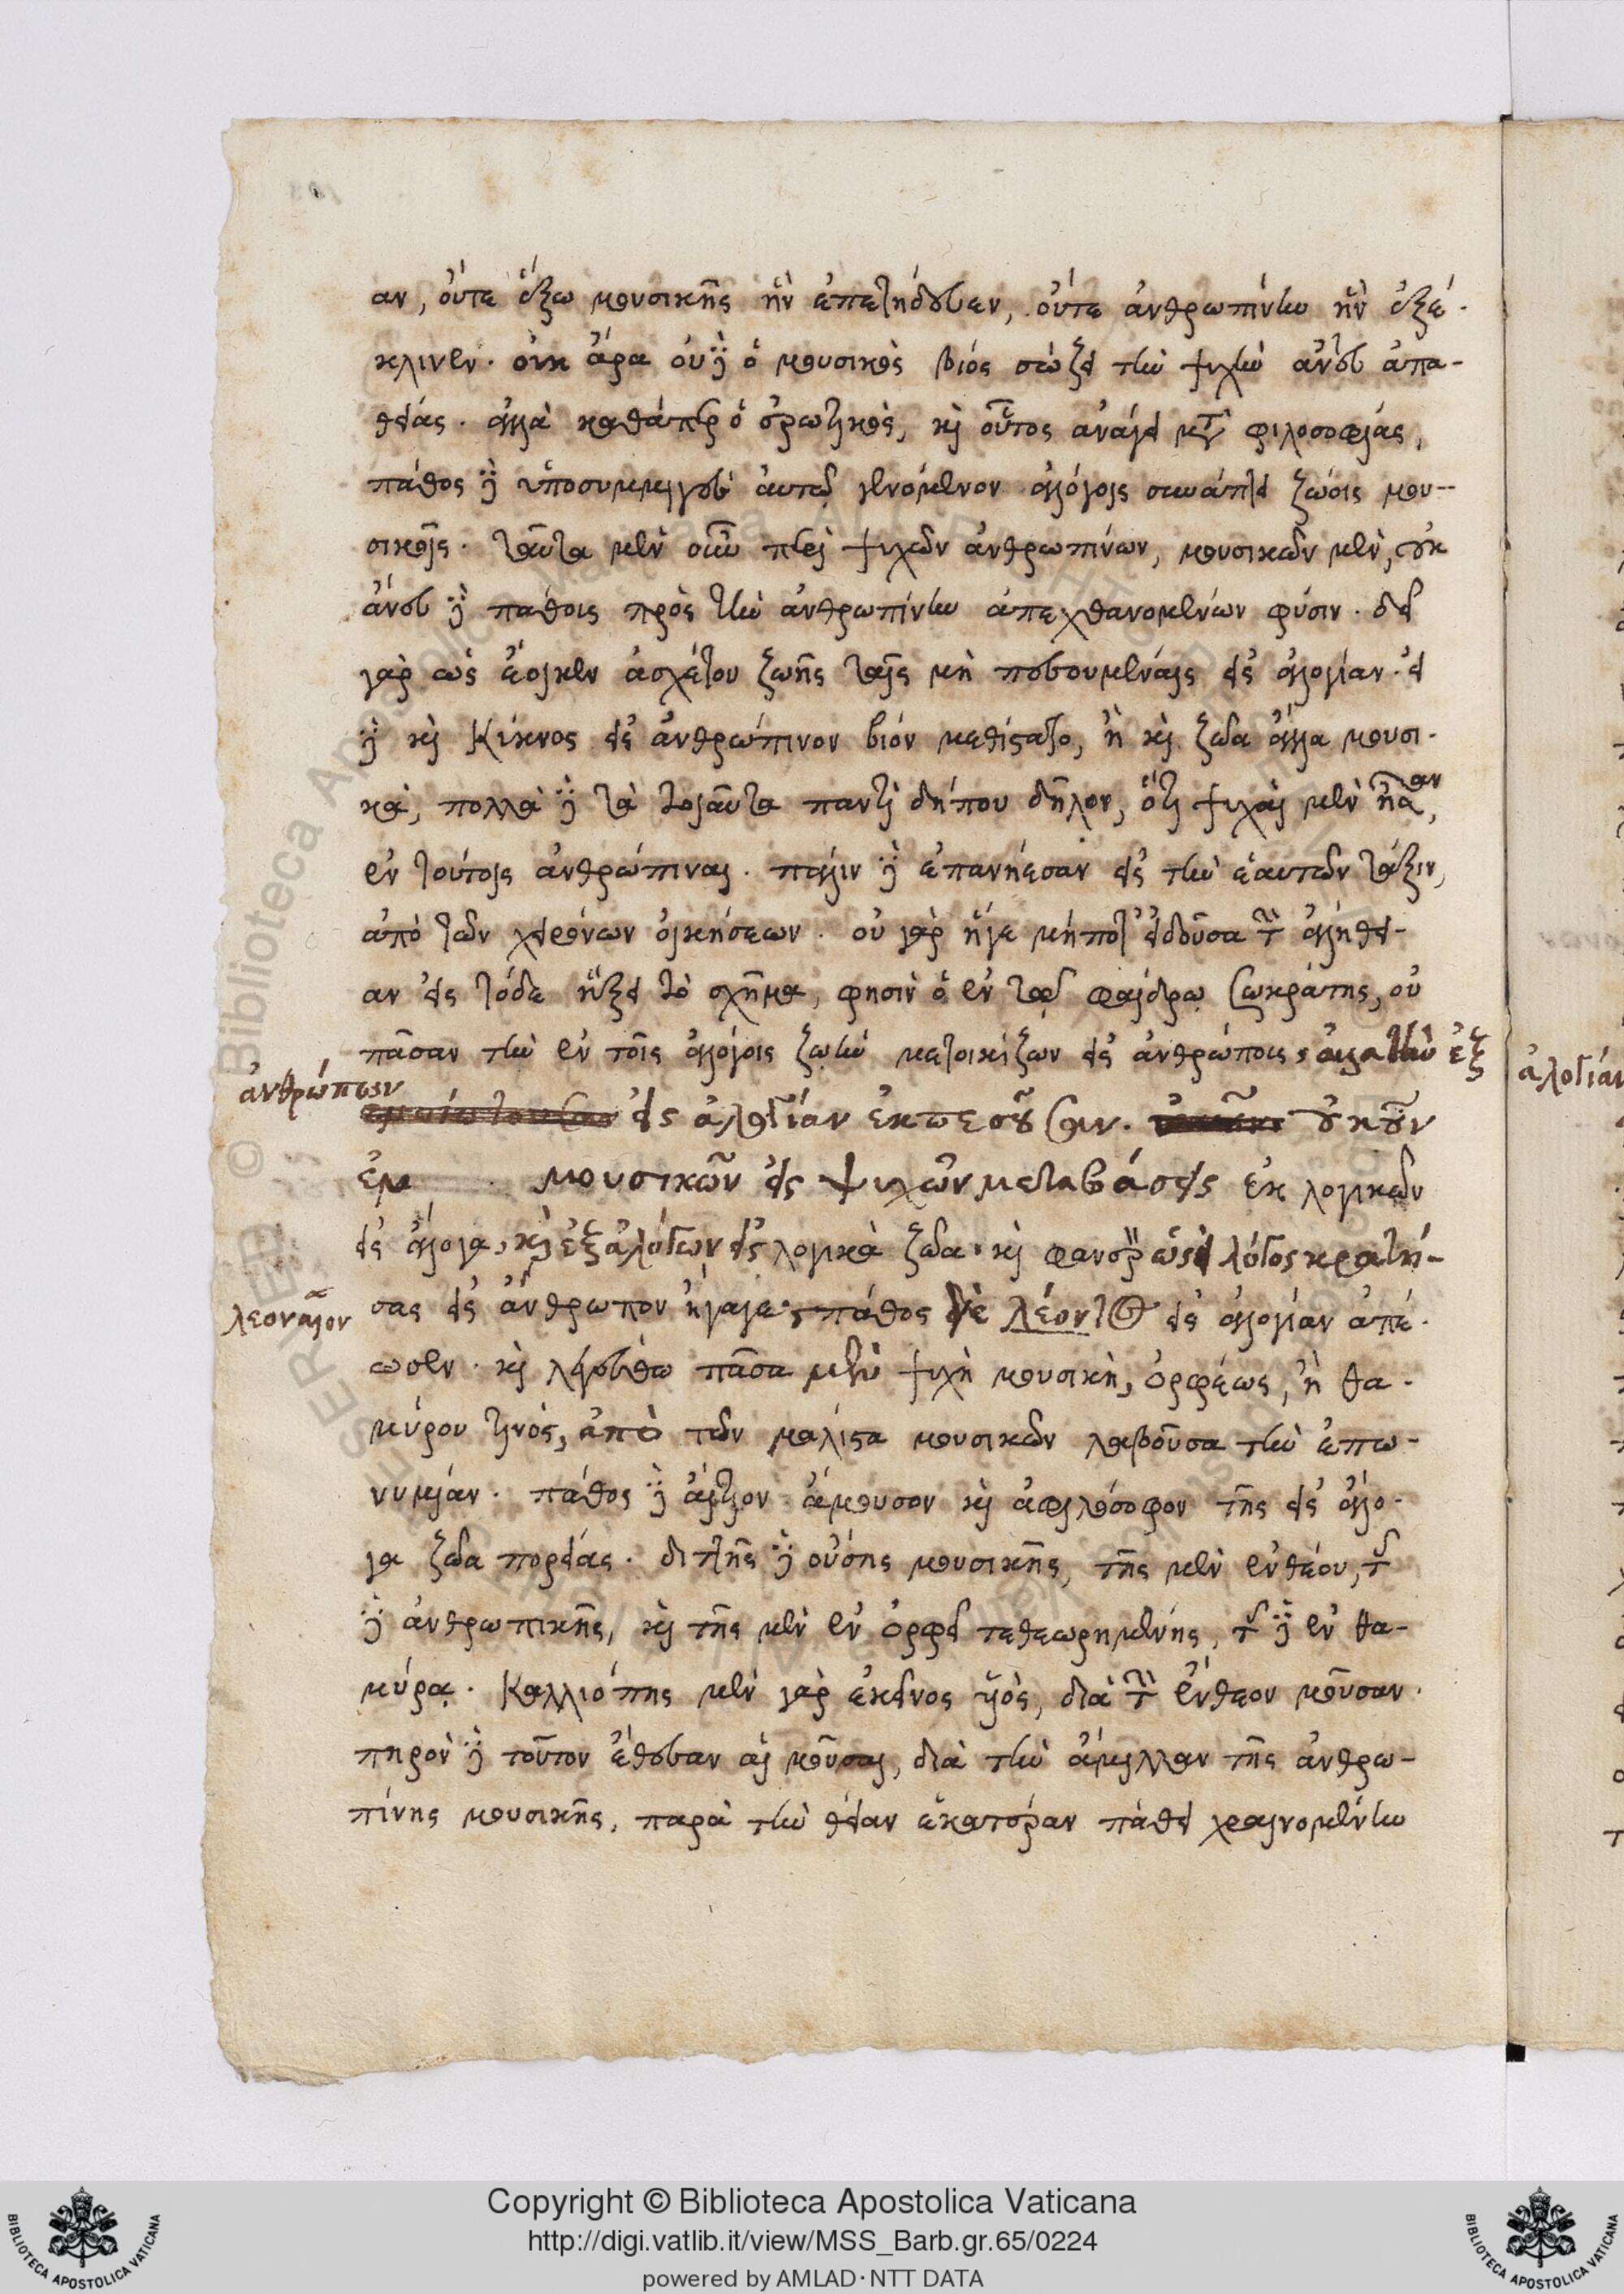 αν, οὔτε ἔξω μουσικῆς ἣν ἐπετήδευεν, οὔτε ἀνθρωπίνην ἣν ἐξέ-
κλινεν. οὐκ ἄρα οὐδὲ ὁ μουσικὸς βίος σώζει τὴν ψυχὴν ἄνευ ἀπα-
θείας. ἀλλὰ καθάπερ ὁ ἐρωτικὸς, καὶ οὗτος ἀνάγει μετὰ φιλοσοφίας,
πάθος δὲ ὑποσυμμιγὲν αὐτῷ γενόμενον ἀλόγοις συνάπτει ζώοις μου-
σικοῖς. ταῦτα μὲν οὖν περὶ ψυχῶν ἀνθρωπίνων, μουσικῶν μὲν, οὐκ
ἄνευ δὲ πάθοις πρὸς τὴν ἀνθρωπίνην ἀπεχθανομένων φύσιν. δεῖ
γὰρ ὡς ἔοικεν ἀσχέτου ζωῆς ταῖς μὴ ποβουμέναις εἰς ἀλογίαν. εἰ
δὲ καὶ Κύκνος εἰς ἀνθρώπινον βίον μεθίστατο, ἢ καὶ ζῶα ἄλλα μουσι-
κὰ, πολλὰ δὲ τὰ τοιαῦτα παντὶ δήπου δῆλον, ὅτι ψυχαὶ μὲν ἦσαν,
ἐν τούτοις ἀνθρώπιναι. πάλιν δὲ ἐπανήεσαν εἰς τὴν ἑαυτῶν τάξιν,
ἀπὸ τῶν χειρόνων οἰκήσεων. οὐ γὰρ ἥγε μήποτ' ἰδοῦσα τὴν ἀλήθει-
αν εἰς τόδε ἥξει τὸ σχῆμα, φησὶν ὁ ἐν τῷ φαίδρῳ Σωκράτης, οὐ
πᾶσαν τὴν ἐν τοῖς ἀλόγοις ζωὴν μετοικίζων εἰς ἀνθρώπους, ἀλλὰ τὴν ἐξ
ἀνθρώπων
εἰς ἀλογίαν ἐκπεσοῦσαν. οὐκοῦν
ἐμ μουσικῶν εἰς ψυχῶν μεταβάσεις ἐκ λογικῶν
εἰς ἄλογα, καὶ ἐξ ἀλόγων εἰς λογικὰ ζῶα. καὶ φανερὸν ὡς εἰ λόγος κρατή-
σας εἰς ἄνθρωπον ἤγαγε, πάθος δὲ λέοντος εἰς ἀλογίαν ἀπέ-
λεονταῖον
ωσεν. καὶ λεγέσθω πᾶσα μὲν ψυχὴ μουσικὴ, ὀρφέως, ἢ θα-
μύρου τινὸς, ἀπὸ τῶν μάλιστα μουσικῶν λαβοῦσα τὴν ἐπω-
νυμίαν. πάθος δὲ αἴτιον ἄμουσον καὶ ἀφιλόσοφον τῆς εἰς ἄλο-
γα ζῶα πορείας. διττῆς δὲ οὔσης μουσικῆς, τῆς μὲν ἐνθέου, τῆς
δὲ ἀνθρωπικῆς, καὶ τῆς μὲν ἐν ὀρφεῖ τεθεωρημένης, τῆς δὲ ἐν θα-
μύρᾳ. Καλλιόπης μὲν γὰρ ἐκεῖνος υἱὸς, διὰ τὴν ἔνθεον μοῦσαν.
πηρὸν δὲ τοῦτον ἔθεσαν αἱ μοῦσαι, διὰ τὴν ἅμιλλαν τῆς ἀνθρω-
πίνης μουσικῆς, παρὰ τὴν θείαν ἑκατέραν πάθει χραινομένην
ἀλογίαν
Copyright © Biblioteca Apostolica Vaticana
http://digi.vatlib.it/view/MSS_Barb.gr.65/0224
powered by AMLAD·NTT DATA
BIBLIOTECA APOSTOLICA VATICANA
BIBLIOTECA APOSTOLICA VATICANA